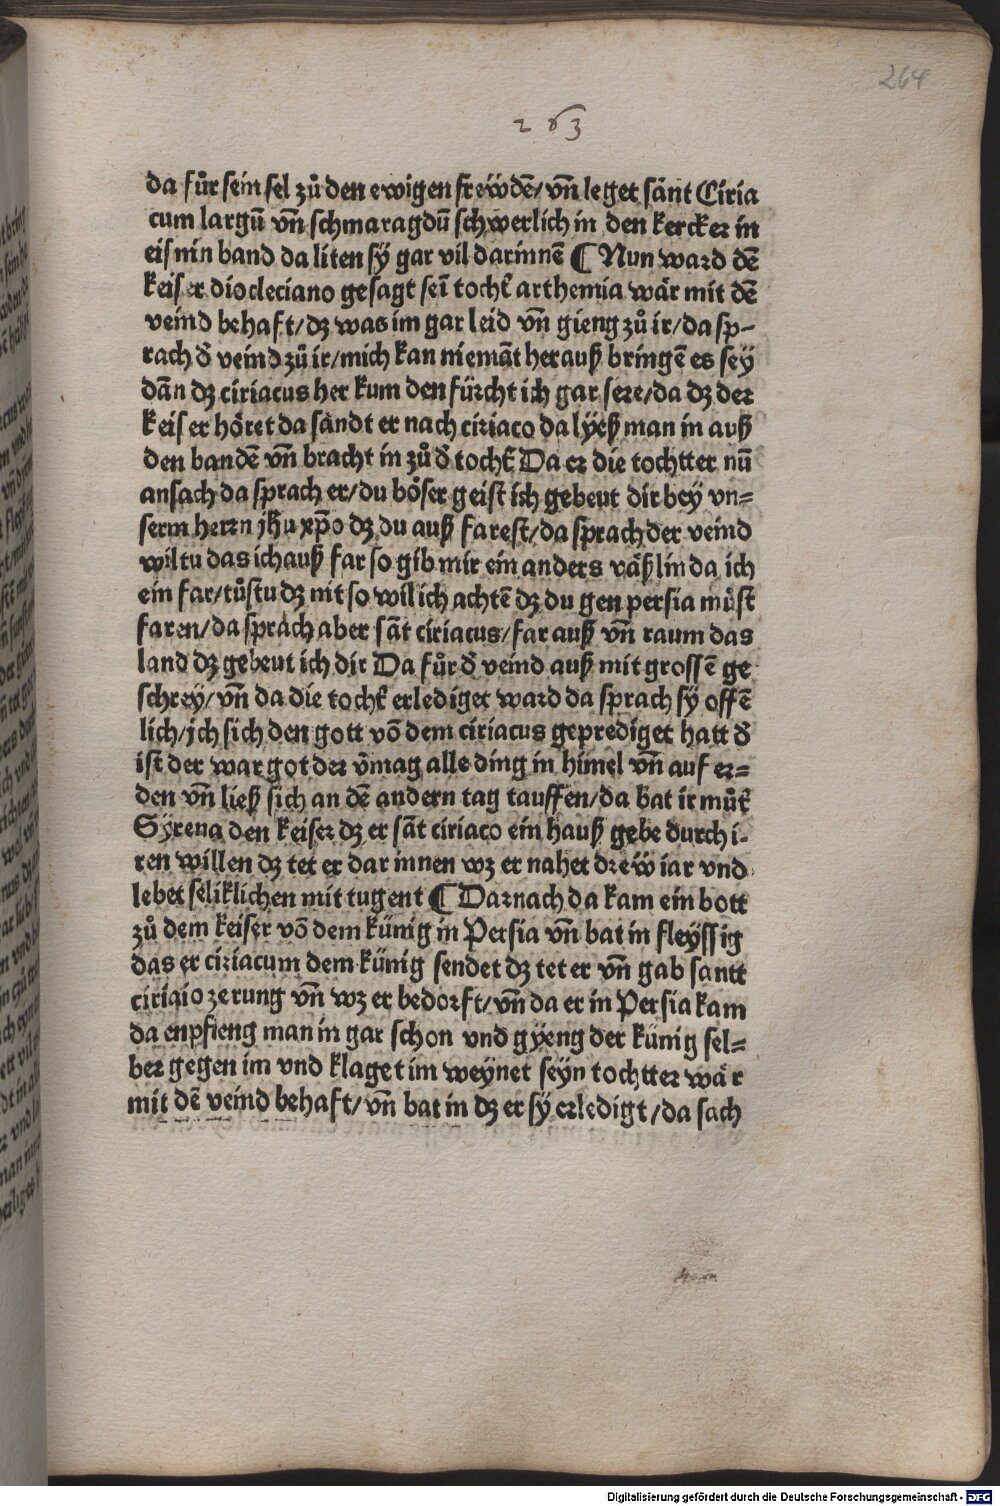 264
263
da fůr sein sel zů den ewigen frewdē/ vñ leget sānt Ciria
cum largū vñ schmaragdū schwerlich in den kercker in
eisnin band da liten sÿ gar vil darinnē ¶ Nun ward dē
keiser diocleciano gesagt seī tocht̄ arthemia wår mit dē
veind behaft/ dz was im gar leid vñ gieng zů ir/ da sp-
rach d̄ veind zů ir/ mich kan niemāt herauß bringē es sey
dān dz ciriacus her kum den fürcht ich gar sere/ da dz der
keiser höret da sandt er nach ciriaco da lÿeß man in auß
den bandē vñ bracht in zů d̄ tocht̄ Da er die tochtter nū
ansach da sprach er/ du böser geist ich gebeut dir bey vn=
serm herrn jh̄u xp̄o dz du auß farest/ da sprach der veind
wiltu das ich auß far so gib mir ein anders våßlin da ich
ein far/ tůstu dz nit so wil ich achtē dz du gen persia můst
faren/ da sprach aber sāt ciriacus/ far auß vñ raum das
land dz gebeut ich dir Da fůr d̄ veind auß mit grossē ge
schrey/ vñ da die tocht̄ erlediget ward da sprach sÿ offē
lich/ jch sich den gott vō dem ciriacus geprediget hatt d̄
ist der war got der v̄mag alle ding in himel vñ auf er=
den vñ ließ sich an dē andern tag tauffen/ da bat ir můt̄
Sÿrena den keiser dz er sāt ciriaco ein hauß gebe durch i-
ren willen dz tet er dar innen wz er nahet drew iar vnd
lebet seliklichen mit tugent ¶ Darnach da kam ein bott
zů dem keiser vō dem künig in Persia vñ bat in fleyssig
das er ciriacum dem künig sendet dz tet er vñ gab santt
ciriaio zerung vñ wz er bedorft/ vñ da er in Persia kam
da enpfieng man in gar schon vnd gÿeng der künig sel=
ber gegen im vnd klaget im weynet seyn tochtter wår
mit dē veind behaft/ vñ bat in dz er sÿ erledigt/ da sach
Digitalisierung gefördert durch die Deutsche Forschungsgemeinschaft - DFG